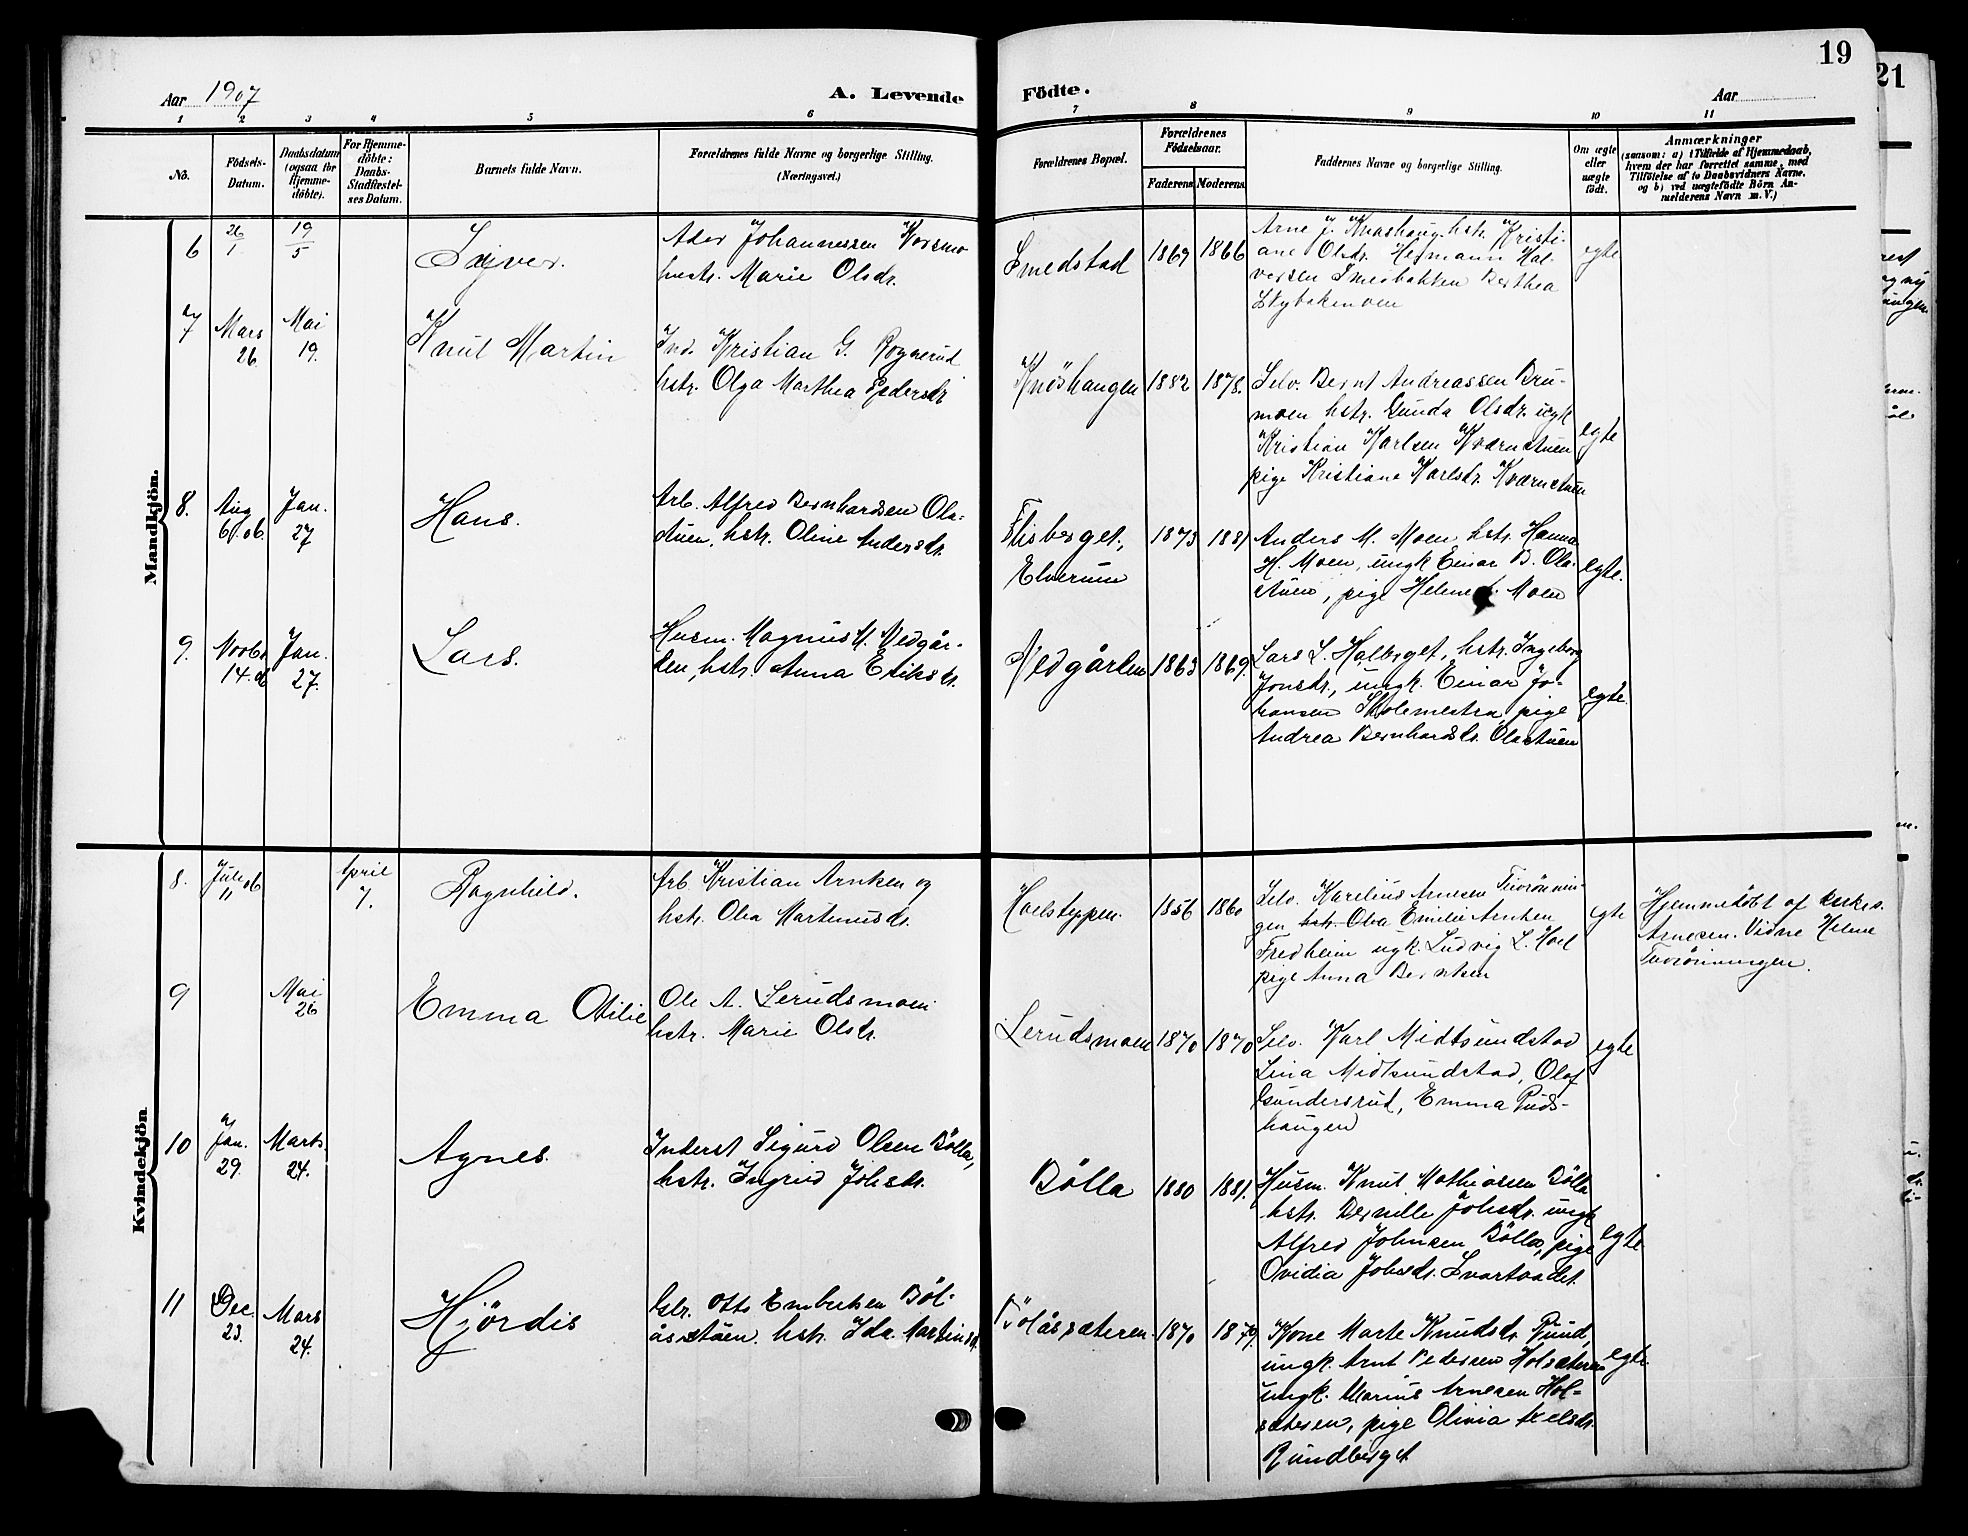 19
21
Aar 1907
A. Levende
Födte.
Aar
1 2 3 4 5 6 7 8 9 10 11
Nō.
Födsels-
Datum.
Daabsdatum
(ogsaa for
Hjemme-
döbte).
For Hjemme-
döbte:
Daabs-
Stadfæstel-
ses Datum.
Barnets fulde Navn.
Forældrenes fulde Navne og borgerlige Stilling.
(Næringsvei.)
Forældrenes Bopæl.
Forældrenes
Födselsaar.
Faderens
Moderens
Faddernes Navne og borgerlige Stilling.
Om ægte
eller
uægte
födt.
Anmærkninger
(saasom: a) i Tilfælde af Hjemmedaab,
hvem der har forrettet samme, med
Tilföielse af to Daabsvidners Navne,
og b) ved uægtefödte Börn An-
melderens Navn m. V.)
Mandkjön.
6
26/1
19/5
Johannessen Korsmo
hustr. Marie Olsdr.
Smedstad
1869
1866
Arne J. hstr. Kristi-
ane Olsdr. Hermann Hal-
vorsen Berthea
egte
7
Mars
26
Mai
19.
Knut Martin
Ind. Kristian G. Rognerud
hstr. Olga Marthea Pedersdr
Knöshaugen
1882
1878.
Selv. Bernt Andreassen Bru-
moen hstr. Gunda Olsdr. ugk
Kristian Karlsen Kværnstuen
pige Kristiane Karlsdr. Kværnstuen
egte
8.
Aug
6. 06.
Jan.
27
Hans.
Arb. Alfred Bernhardsen Ola-
stuen, hstr. Oline Andersdr.
Flisberget,
Elverum
1873
1881
Anders M. Moen hstr. Hanna
H. Moen, ungk Einar B. Ola-
stuen, pige Helene Moen
egte.
9.
Novbr
14. 06
Jan.
27.
Lars.
Husm. Magnus M. Nedgår-
den, hstr. Anna Eriksdr.
Nedgården
1863
1869.
Lars L. Halberget, hstr. Ingeborg
Jonsdr., ungk. Einar Jo-
hansen pige
Andrea Bernhardsdr. Olastuen
egte.
Kvindekjön.
8.
Juli 06
11
April
7.
Ragnhild.
Arb. Kristian Arntsen og
hstr. Olea Martinusdr.
1856
1860
Selv. Karelius Arnesen
gen hstr. Olea Emilie Arntsen
Fredheim ugk. Ludvig L. Hoel
pige Anna Berntsen
egte
Hjemmedöbt af kirkes.
Arnesen. Vidne Helene
9
Mai
26
Emma Otilie
Ole A. Lerudsmoen
hstr. Marie Olsdr.
Lerudsmoen
1870
1870
Selv. Karl Midtsundstad
Lina Midtsundstad, Olaf
Gundersrud, Emma Ruds-
haugen
egte
10
Jan.
29.
Marts
24.
Agnes.
Inderst Sigurd Olsen Bölla,
hstr. Ingrid Johsdr.
Bölla
1880
1881.
Husm. Knut Mathiassen Bölla
hstr. Pernille Johsdr. ungk
Alfred Johnsen Bölla, pige
Ovidia Johsdr. Svartaadet.
egte
11
Dec.
23.
Mars
24.
Hjördis
Gbr. Otto Embretsen Böl-
åsstöen hstr. Ida Martinsdr.
Bölåssæteren.
1870
1879.
Kone Marte Knudsdr. Rund,
ungk. Arnt Pedersen Holsæteren
ungk. Marius Arnesen Hol-
sæteren, pige Olivia Axelsdr.
Rundberget
egte.